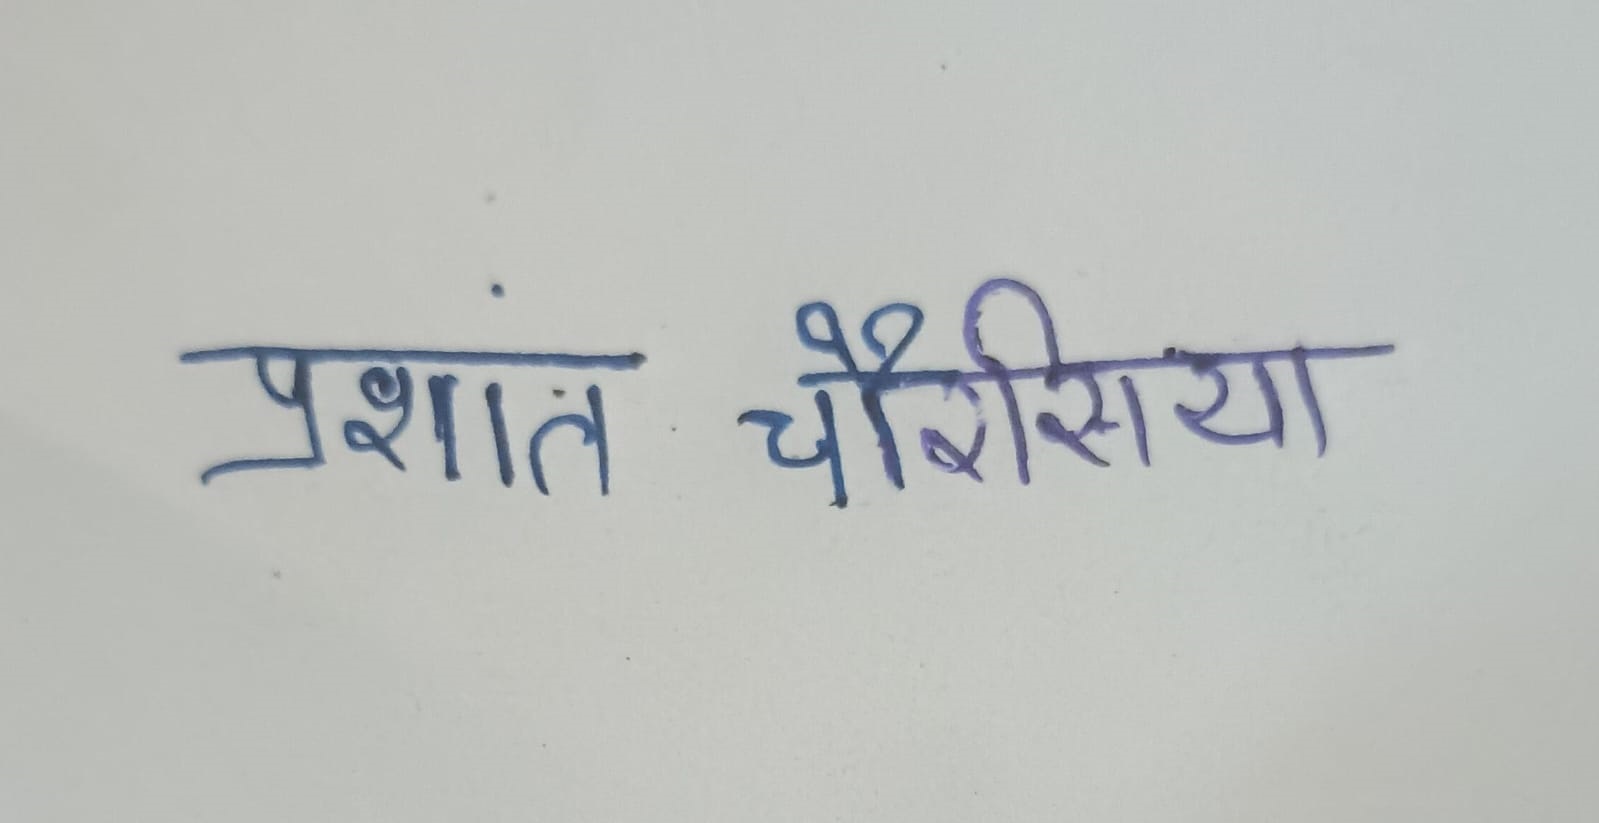 प्रशांत चौरसिया